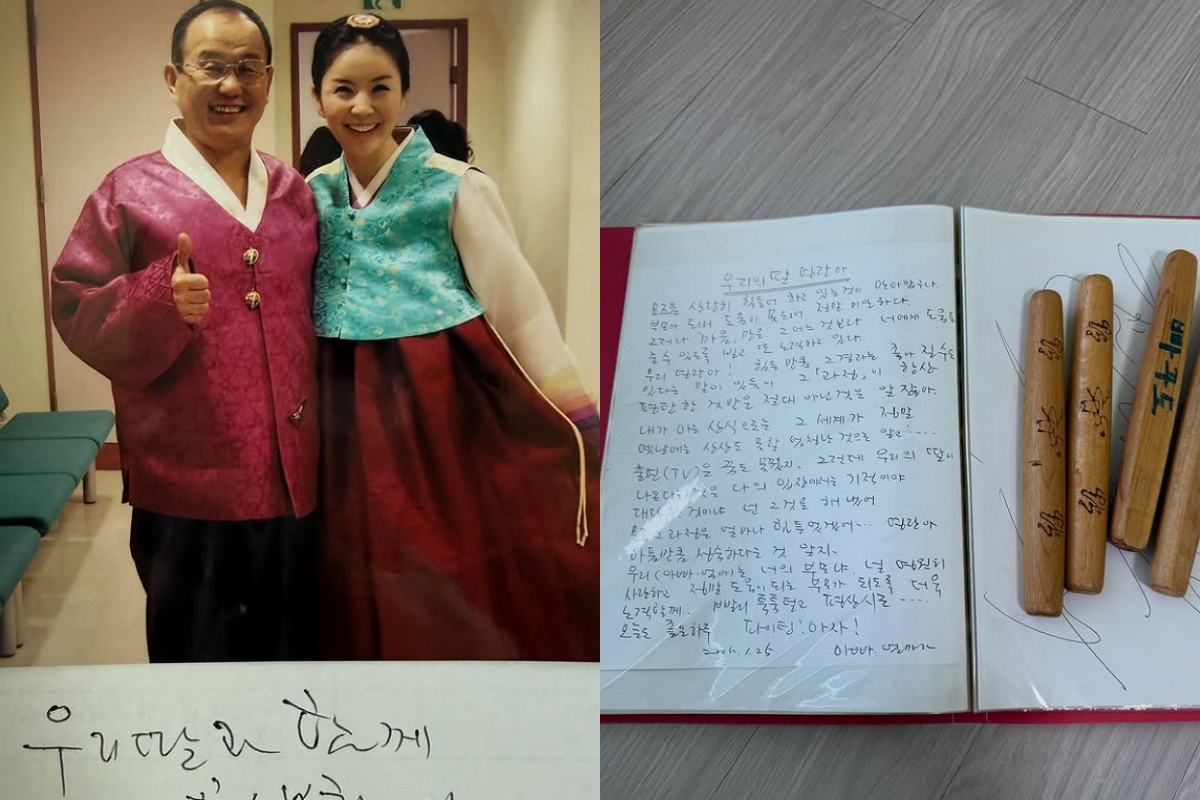 우리딸과 함께
우리의 딸 영란아
요즈음 상당히 힘들어 하고 있는것이 안타깝구나.
부모가 되서 도움이 못되어 정말 미안하다.
그러나 마음 만은 그 어느것보다 너에게 도움을
줄수 있도록 빌고 또 노력하고 있다.
우리 영란아! 힘든 만큼 그 결과는 좋아 질수도
있다는 말이 있듯이 그 「과정」이 항상
평탄한 것만은 절대 아닌것은 알 잖아.
내가 아는 상식으로는 그 세계가 정말
옛날에는 상상도 못할 엄청난 것으로 알고·····
출연(TV)은 꿈도 못꿨지. 그런데 우리의 딸이
나온다는 것은 나의 입장에서는 기적이야
대단한 것이야 넌 그것을 해 냈어
그 과정은 얼마나 힘들었겠어··· 영란아
아픔만큼 성숙하다는 것 알지.
우리(아빠·엄마)는 너의 부모야. 널 영원히
사랑하고 정말 도움이 되는 부모가 되도록 더욱
노력할께. 빨리 툭툭털고 평상시로·····
오늘도 즐거운 하루 파이팅! 아자!
1.25 아빠·엄마가
박구도